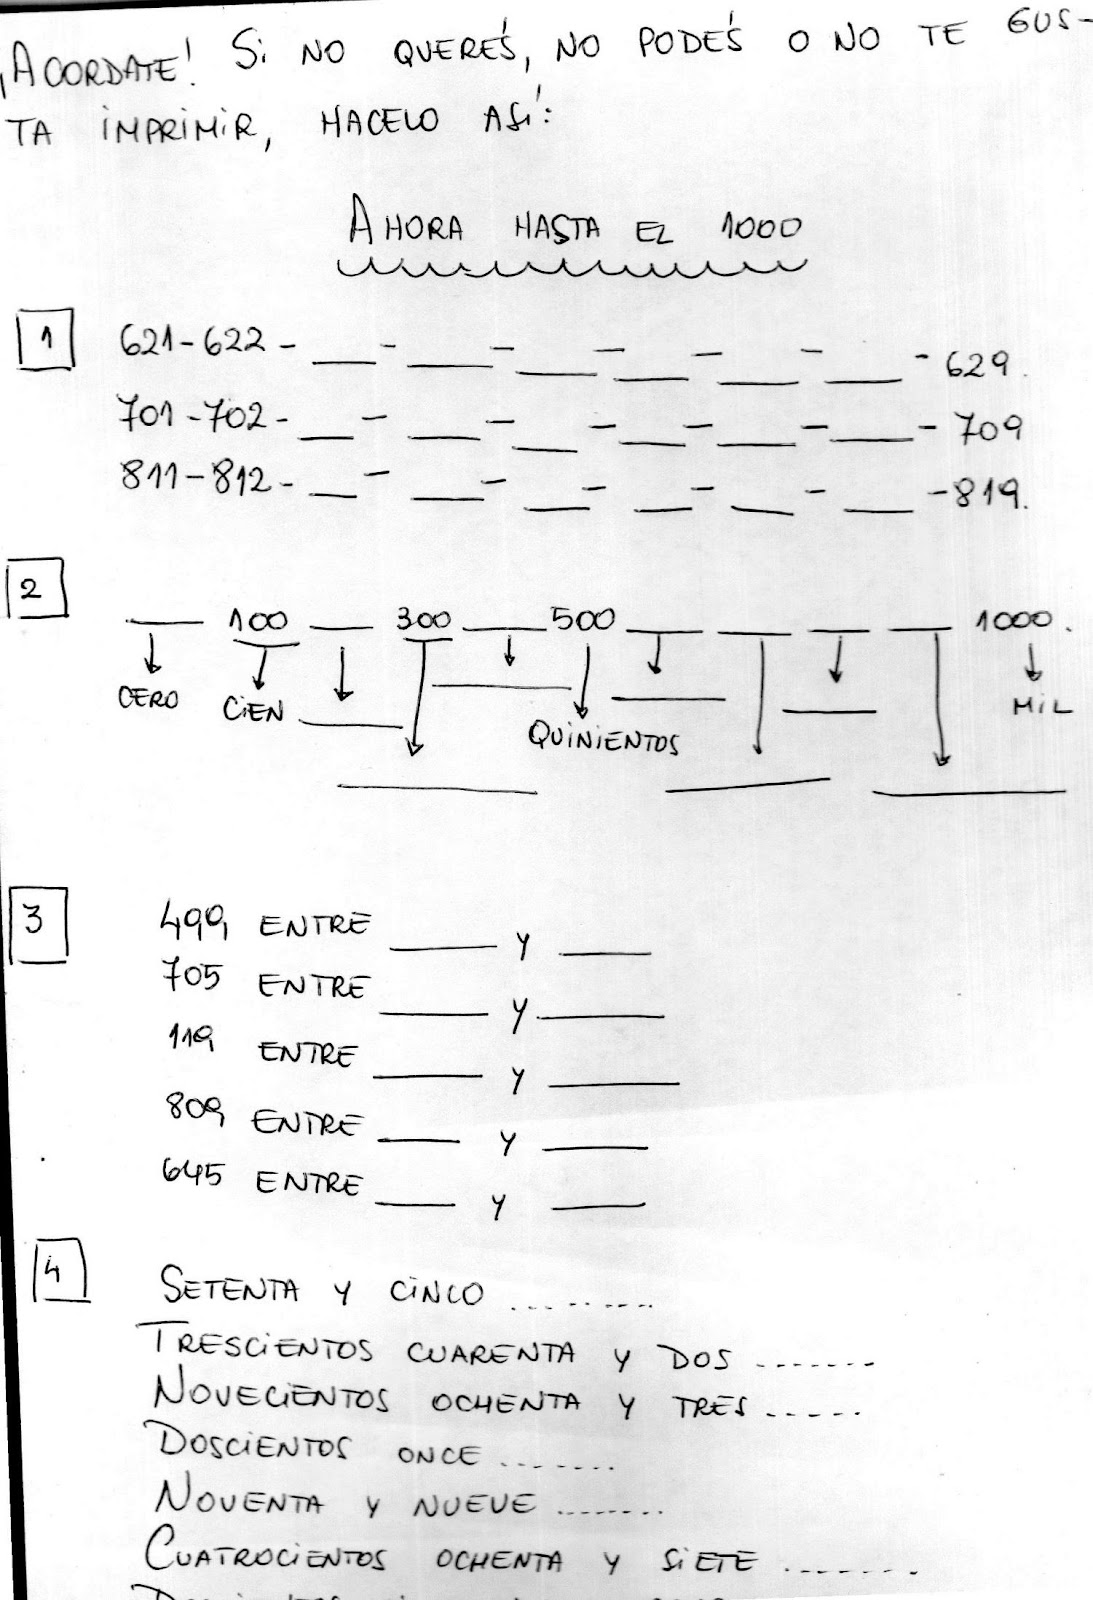 ¡ACORDATE! SI NO QUERÉS, NO PODÉS O NO TE GUS-
TA IMPRIMIR, HACELO ASÍ:
AHORA HASTA EL 1000
1 621-622- ___ - ___ - ___ - ___ - ___ - ___ - 629.
701-702- ___ - ___ - ___ - ___ - ___ - ___ - 709
811-812- ___ - ___ - ___ - ___ - ___ - ___ - 819.
2
___ 100 ___ 300 ___ 500 ___ ___ ___ ___ 1000.
CERO CIEN ___ ___ ___ QUINIENTOS ___ ___ ___ ___ MIL
3 499 ENTRE ___ Y ___
705 ENTRE ___ Y ___
119 ENTRE ___ Y ___
809 ENTRE ___ Y ___
645 ENTRE ___ Y ___
4 SETENTA Y CINCO .........
TRESCIENTOS CUARENTA Y DOS .......
NOVECIENTOS OCHENTA Y TRES ......
DOSCIENTOS ONCE .......
NOVENTA Y NUEVE .......
CUATROCIENTOS OCHENTA Y SIETE .......